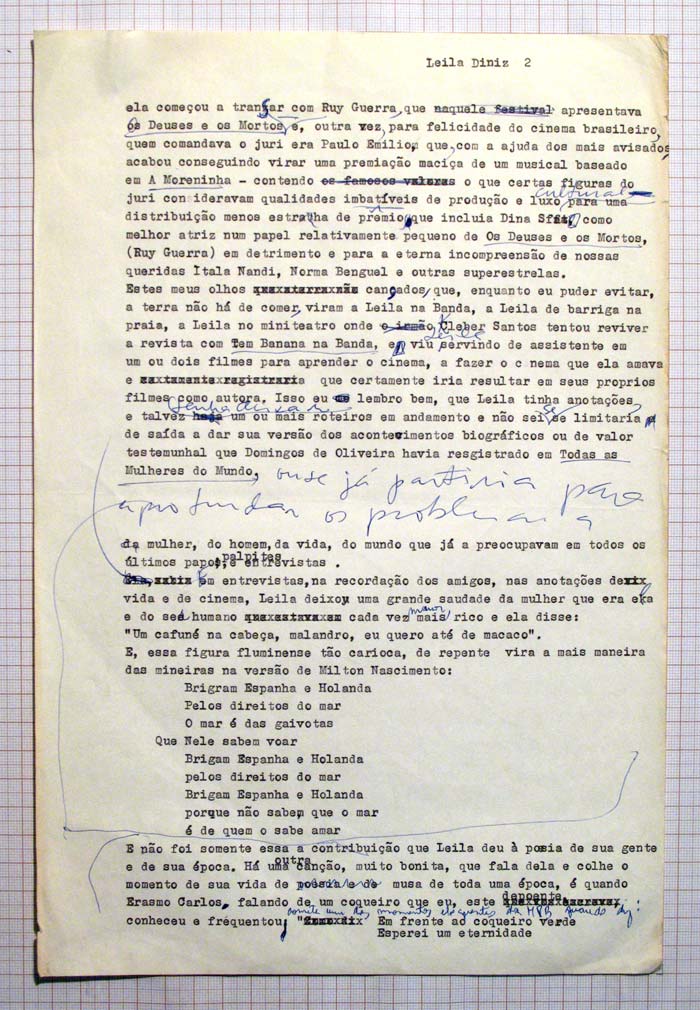 Leila Diniz 2
ela começou a transar com Ruy Guerra, que naquele festival apresentava
os Deuses e os Mortos e, outra vez, para felicidade do cinema brasileiro,
quem comandava o juri era Paulo Emilio, que, com a ajuda dos mais avisados,
acabou conseguindo virar uma premiação maciça de um musical baseado
em A Moreninha - contendo os famosos valores o que certas figuras do
cultural
juri consideravam qualidades imbatíveis de produção e luxo para uma
distribuição menos estranha de prêmio, que incluia Dina Sfat, como
melhor atriz num papel relativamente pequeno de Os Deuses e os Mortos,
(Ruy Guerra) em detrimento e para a eterna incompreensão de nossas
queridas Itala Nandi, Norma Benguel e outras superestrelas.
Estes meus olhos cançados, que, enquanto eu puder evitar,
a terra não há de comer, viram a Leila na Banda, a Leila de barriga na
praia, a Leila no miniteatro onde o irmão Kleber Santos tentou reviver
a revista com Tem Banana na Banda, e viu servindo de assistente em
um ou dois filmes para aprender o cinema, a fazer o c nema que ela amava
e que certamente iria resultar em seus proprios
filmes como autora. Isso eu lembro bem, que Leila tinha anotações
tenha deixado
e talvez haja um ou mais roteiros em andamento e não sei se limitaria
de saída a dar sua versão dos acontecimentos biográficos ou de valor
testemunhal que Domingos de Oliveira havia resgistrado em Todas as
Mulheres do Mundo, onde já partiria para
aprofundar os problemas
da mulher, do homem, da vida, do mundo que já a preocupavam em todos os
palpites
últimos papos, e entrevistas .
Em entrevistas, na recordação dos amigos, nas anotações de
vida e de cinema, Leila deixou uma grande saudade da mulher que era ela
maior
e do ser humano cada vez mais rico e ela disse:
"Um cafuné na cabeça, malandro, eu quero até de macaco".
E, essa figura fluminense tão carioca, de repente vira a mais maneira
das mineiras na versão de Milton Nascimento:
Brigram Espanha e Holanda
Pelos direitos do mar
O mar é das gaivotas
Que Nele sabem voar
Brigam Espanha e Holanda
pelos direitos do mar
Brigam Espanha e Holanda
porque não sabem que o mar
é de quem o sabe amar
E não foi somente essa a contribuição que Leila deu à poesia de sua gente
outra
e de sua época. Há uma canção, muito bonita, que fala dela e colhe o
momento de sua vida de musa de toda uma época, é quando
depoente
Erasmo Carlos, falando de um coqueiro que eu, este
dos momentos eloquentes da MPB quando diz:
conheceu e frequentou " Em frente ao coqueiro verde
Esperei um eternidade